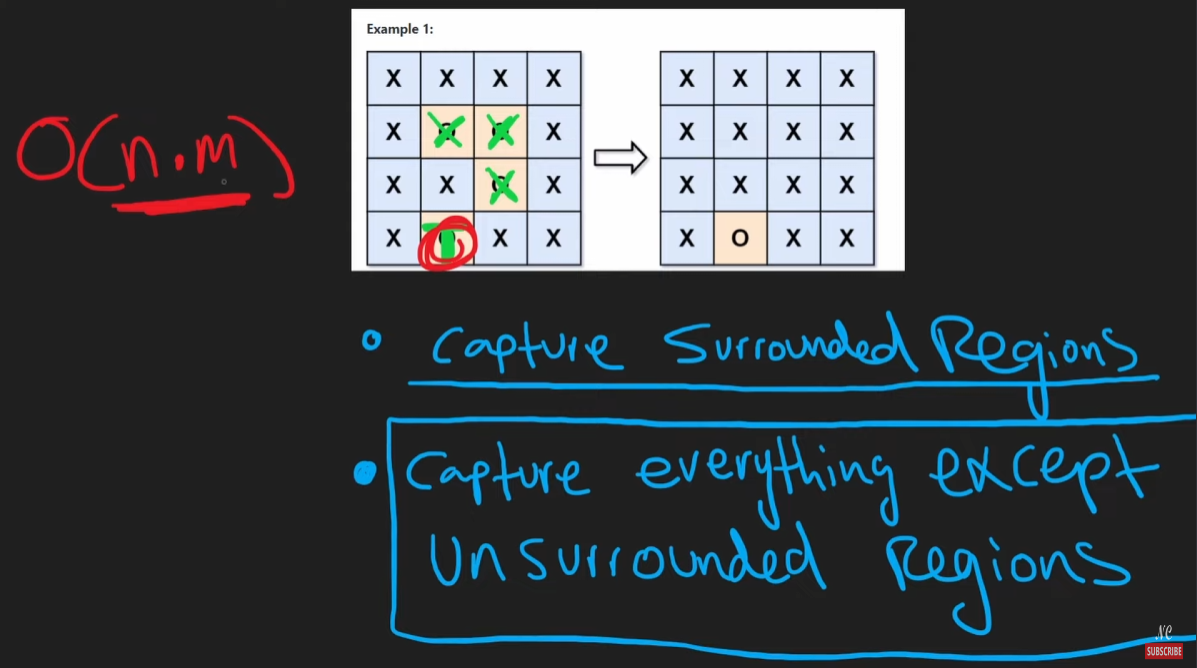 Example 1:
X X X X X X X X
X O O X X X X X
X X O X X X X X
X T X X X O X X
O(n·m)
Capture Surrounded Regions
Capture everything except
Unsurrounded Regions
NC
SUBSCRIBE